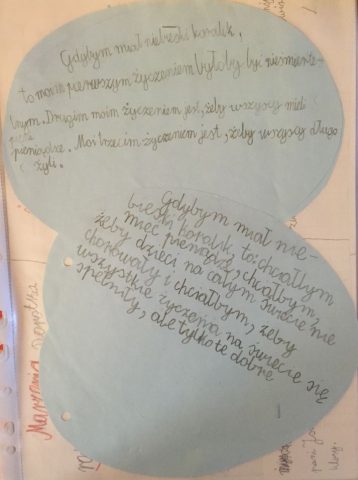 Gdybym miał niebieski koralik,
to moim pierwszym życzeniem byłoby być nieśmierte-
lnym. Drugim moim życzeniem jest, żeby wszyscy mieli
pieniądze. Moi trzecim życzeniem jest, żeby wszyscy długo
żyli.
Gdybym miał nie-
bieski koralik to: chciałbym
mieć pieniądze, chciałbym,
żeby dzieci na całym świecie nie
chorowały i chciałbym, żeby
wszystkie życzenia na świecie się
spełniły, ale tylko te dobre